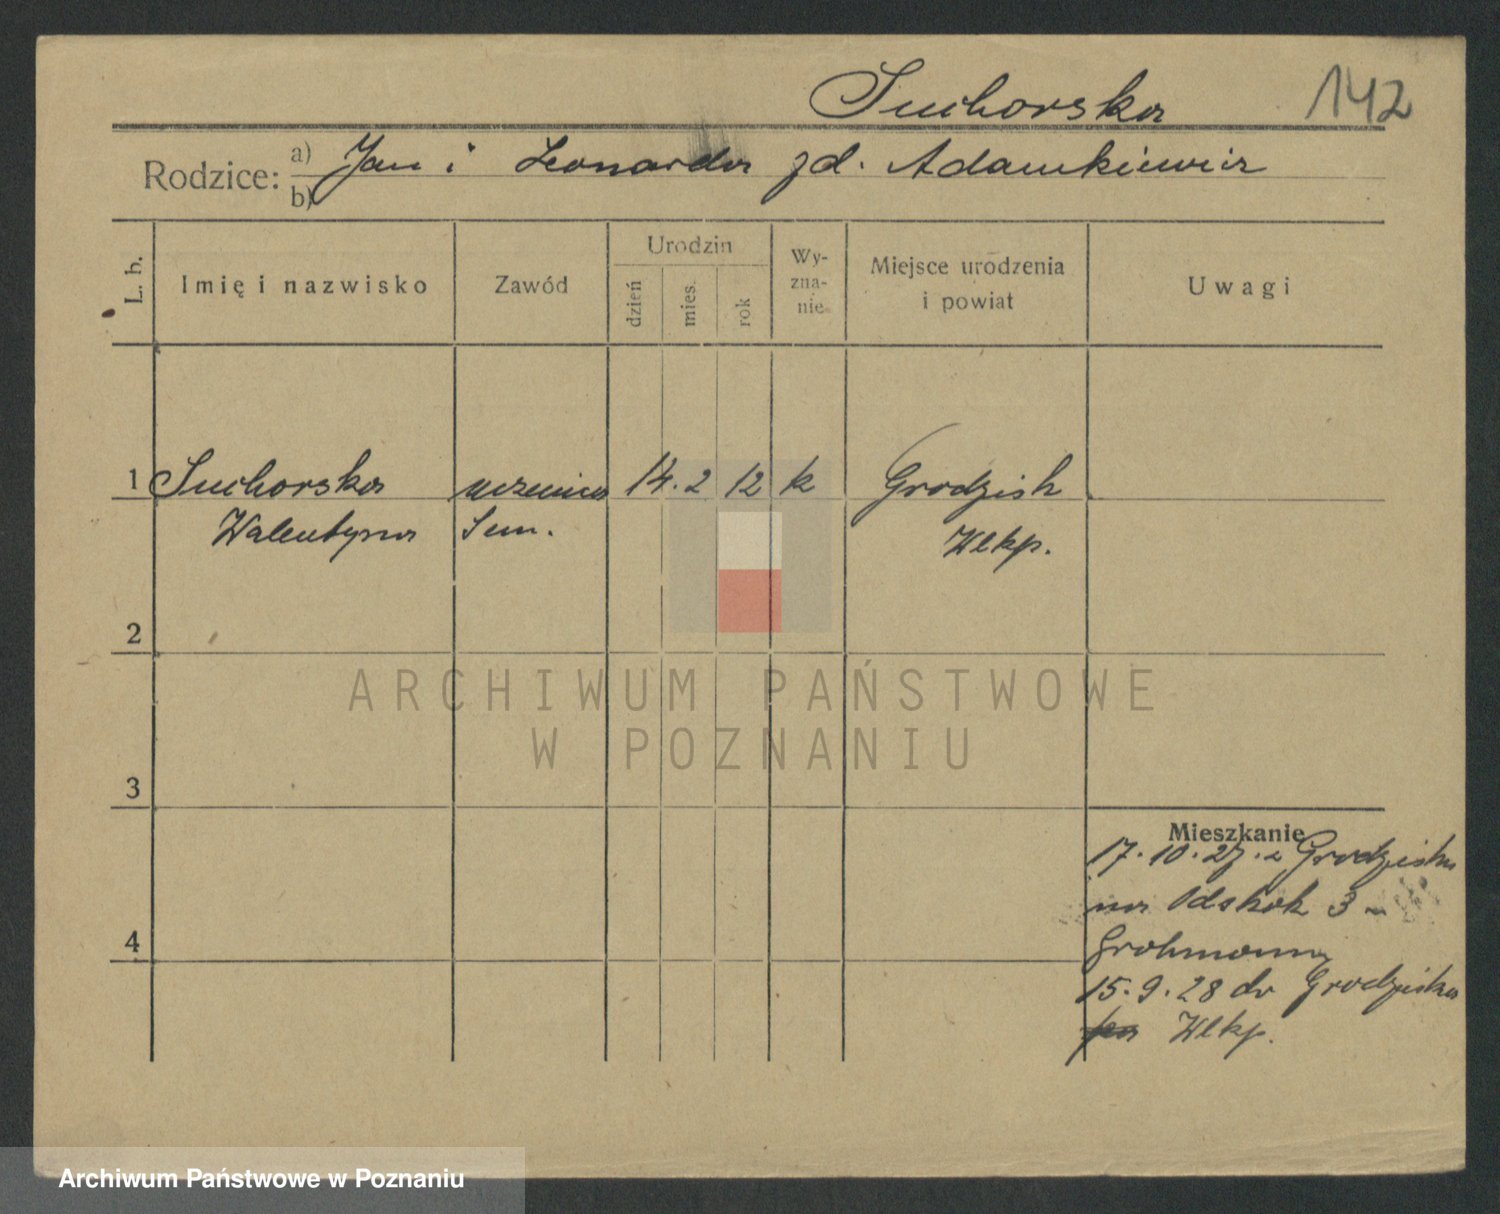 Suchorska 142
Rodzice: a) Jan i Leonarda zd. Adamkiewicz
b)
L. b. Imię i nazwisko Zawód Urodzin dzień mies. rok Wy-zna-nie Miejsce urodzenia i powiat Uwagi
1 Suchorska uczenica 14. 2 12 k Grodzisk
Walentyna Sem. Wlkp.
2
ARCHIWUM PAŃSTWOWE
W POZNANIU
3
Mieszkanie
17. 10. 27. z Grodziska
na Odskok 3 -
Grohmanny
4
15. 9. 28 do Grodziska
Wlkp.
Archiwum Państwowe w Poznaniu